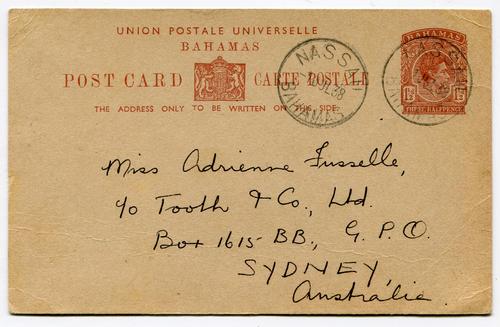 UNION POSTALE UNIVERSELLE
BAHAMAS
POST CARD CARTE POSTALE
THE ADDRESS ONLY TO BE WRITTEN ON THIS SIDE.
NASSAU
JL 38
BAHAMAS
BAHAMAS
THREE HALFPENCE
Miss Adrienne Fusselle,
c/o Tooth & Co., Ltd.
Box 1615 BB., G.P.O.
SYDNEY,
Australia.